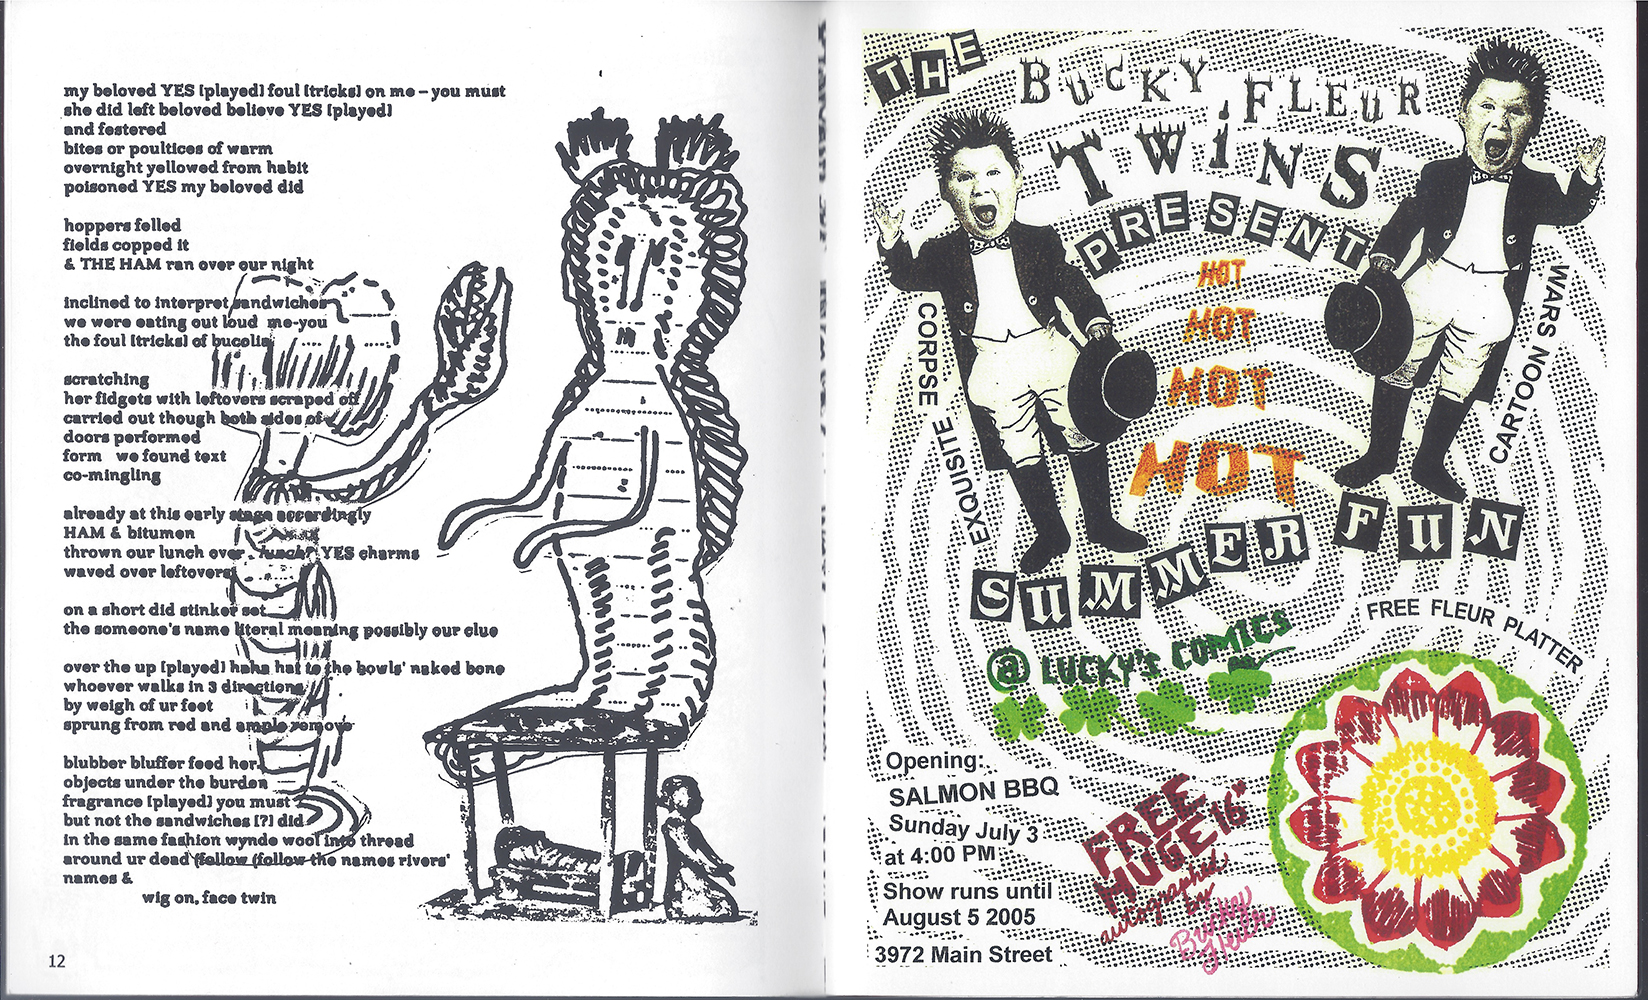 my beloved YES [played] foul [tricks] on me – you must
she did left beloved believe YES [played]
and festered
bites or poultices of warm
overnight yellowed from habit
poisoned YES my beloved did
hoppers felled
fields copped it
& THE HAM ran over our night
inclined to interpret sandwiches
we were eating out loud me-you
the foul [tricks] of bucolia
scratching
her fidgets with leftovers scraped off
carried out though both sides of
doors performed
form we found text
co-mingling
already at this early stage accordingly
HAM & bitumen
thrown our lunch over lunch? YES charms
waved over leftovers
on a short did stinker set
the someone's name literal meaning possibly our clue
over the up [played] haha hat to the bowls' naked bone
whoever walks in 3 directions
by weigh of ur feet
sprung from red and ample remove
blubber bluffer feed her
objects under the burden
fragrance [played] you must
but not the sandwiches [?] did
in the same fashion wynde wool into thread
around ur dead (follow (follow the names rivers'
names &
wig on, face twin
12
THE
BUCKY FLEUR
TWiNS
PRESENT
HOT
HOT
HOT
HOT
EXQUISITE CORPSE
CARTOON WARS
SUMMER FUN
@ LUCKY'S COMICS
FREE FLEUR PLATTER
Opening:
SALMON BBQ
Sunday July 3
at 4:00 PM
Show runs until
August 5 2005
3972 Main Street
FREE
HUGE 16"
autographed
by
Bucky
Fleur